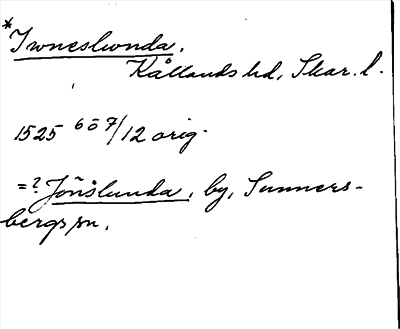 *Iwneslwnda.
Kållands hd, Skar. l.
1525 6ō 7/12 orig.
=? Jönslunda, by, Sunners-
bergs sn.